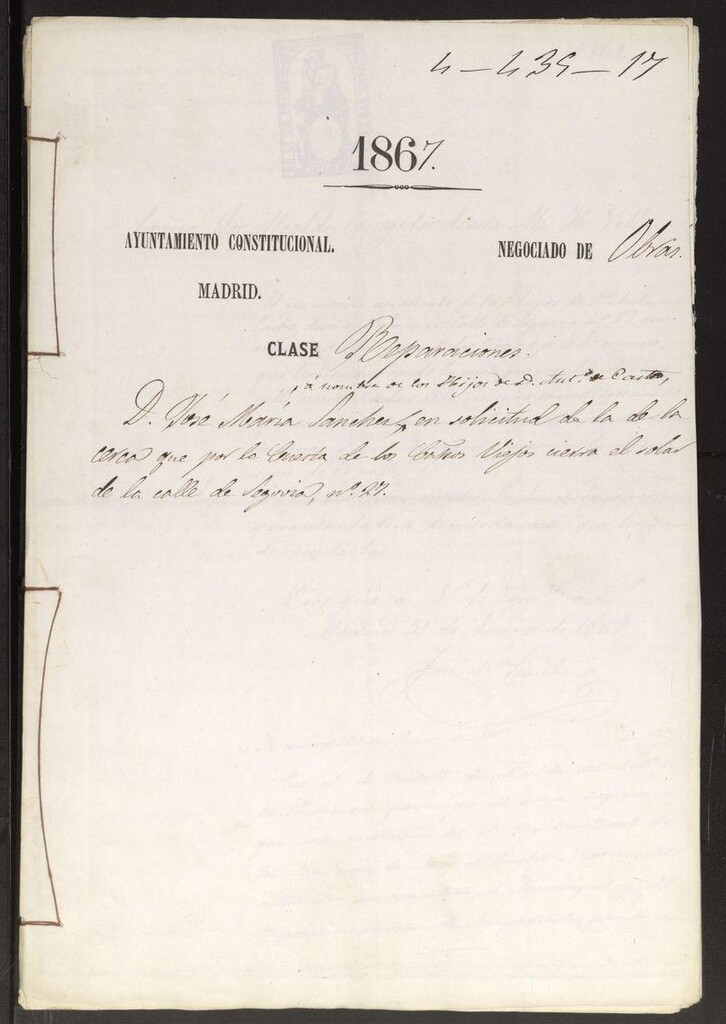 4-435-17
1867.
AYUNTAMIENTO CONSTITUCIONAL. NEGOCIADO DE Obras.
MADRID.
CLASE Reparaciones.
, á nombre de los Hijos de D. Ant.º de Castro,
D. José María Sanchez, en solicitud de la de la
cerca que por la Cuesta de los Caños Viejos cierra el solar
de la calle de Segovia, nº. 27.